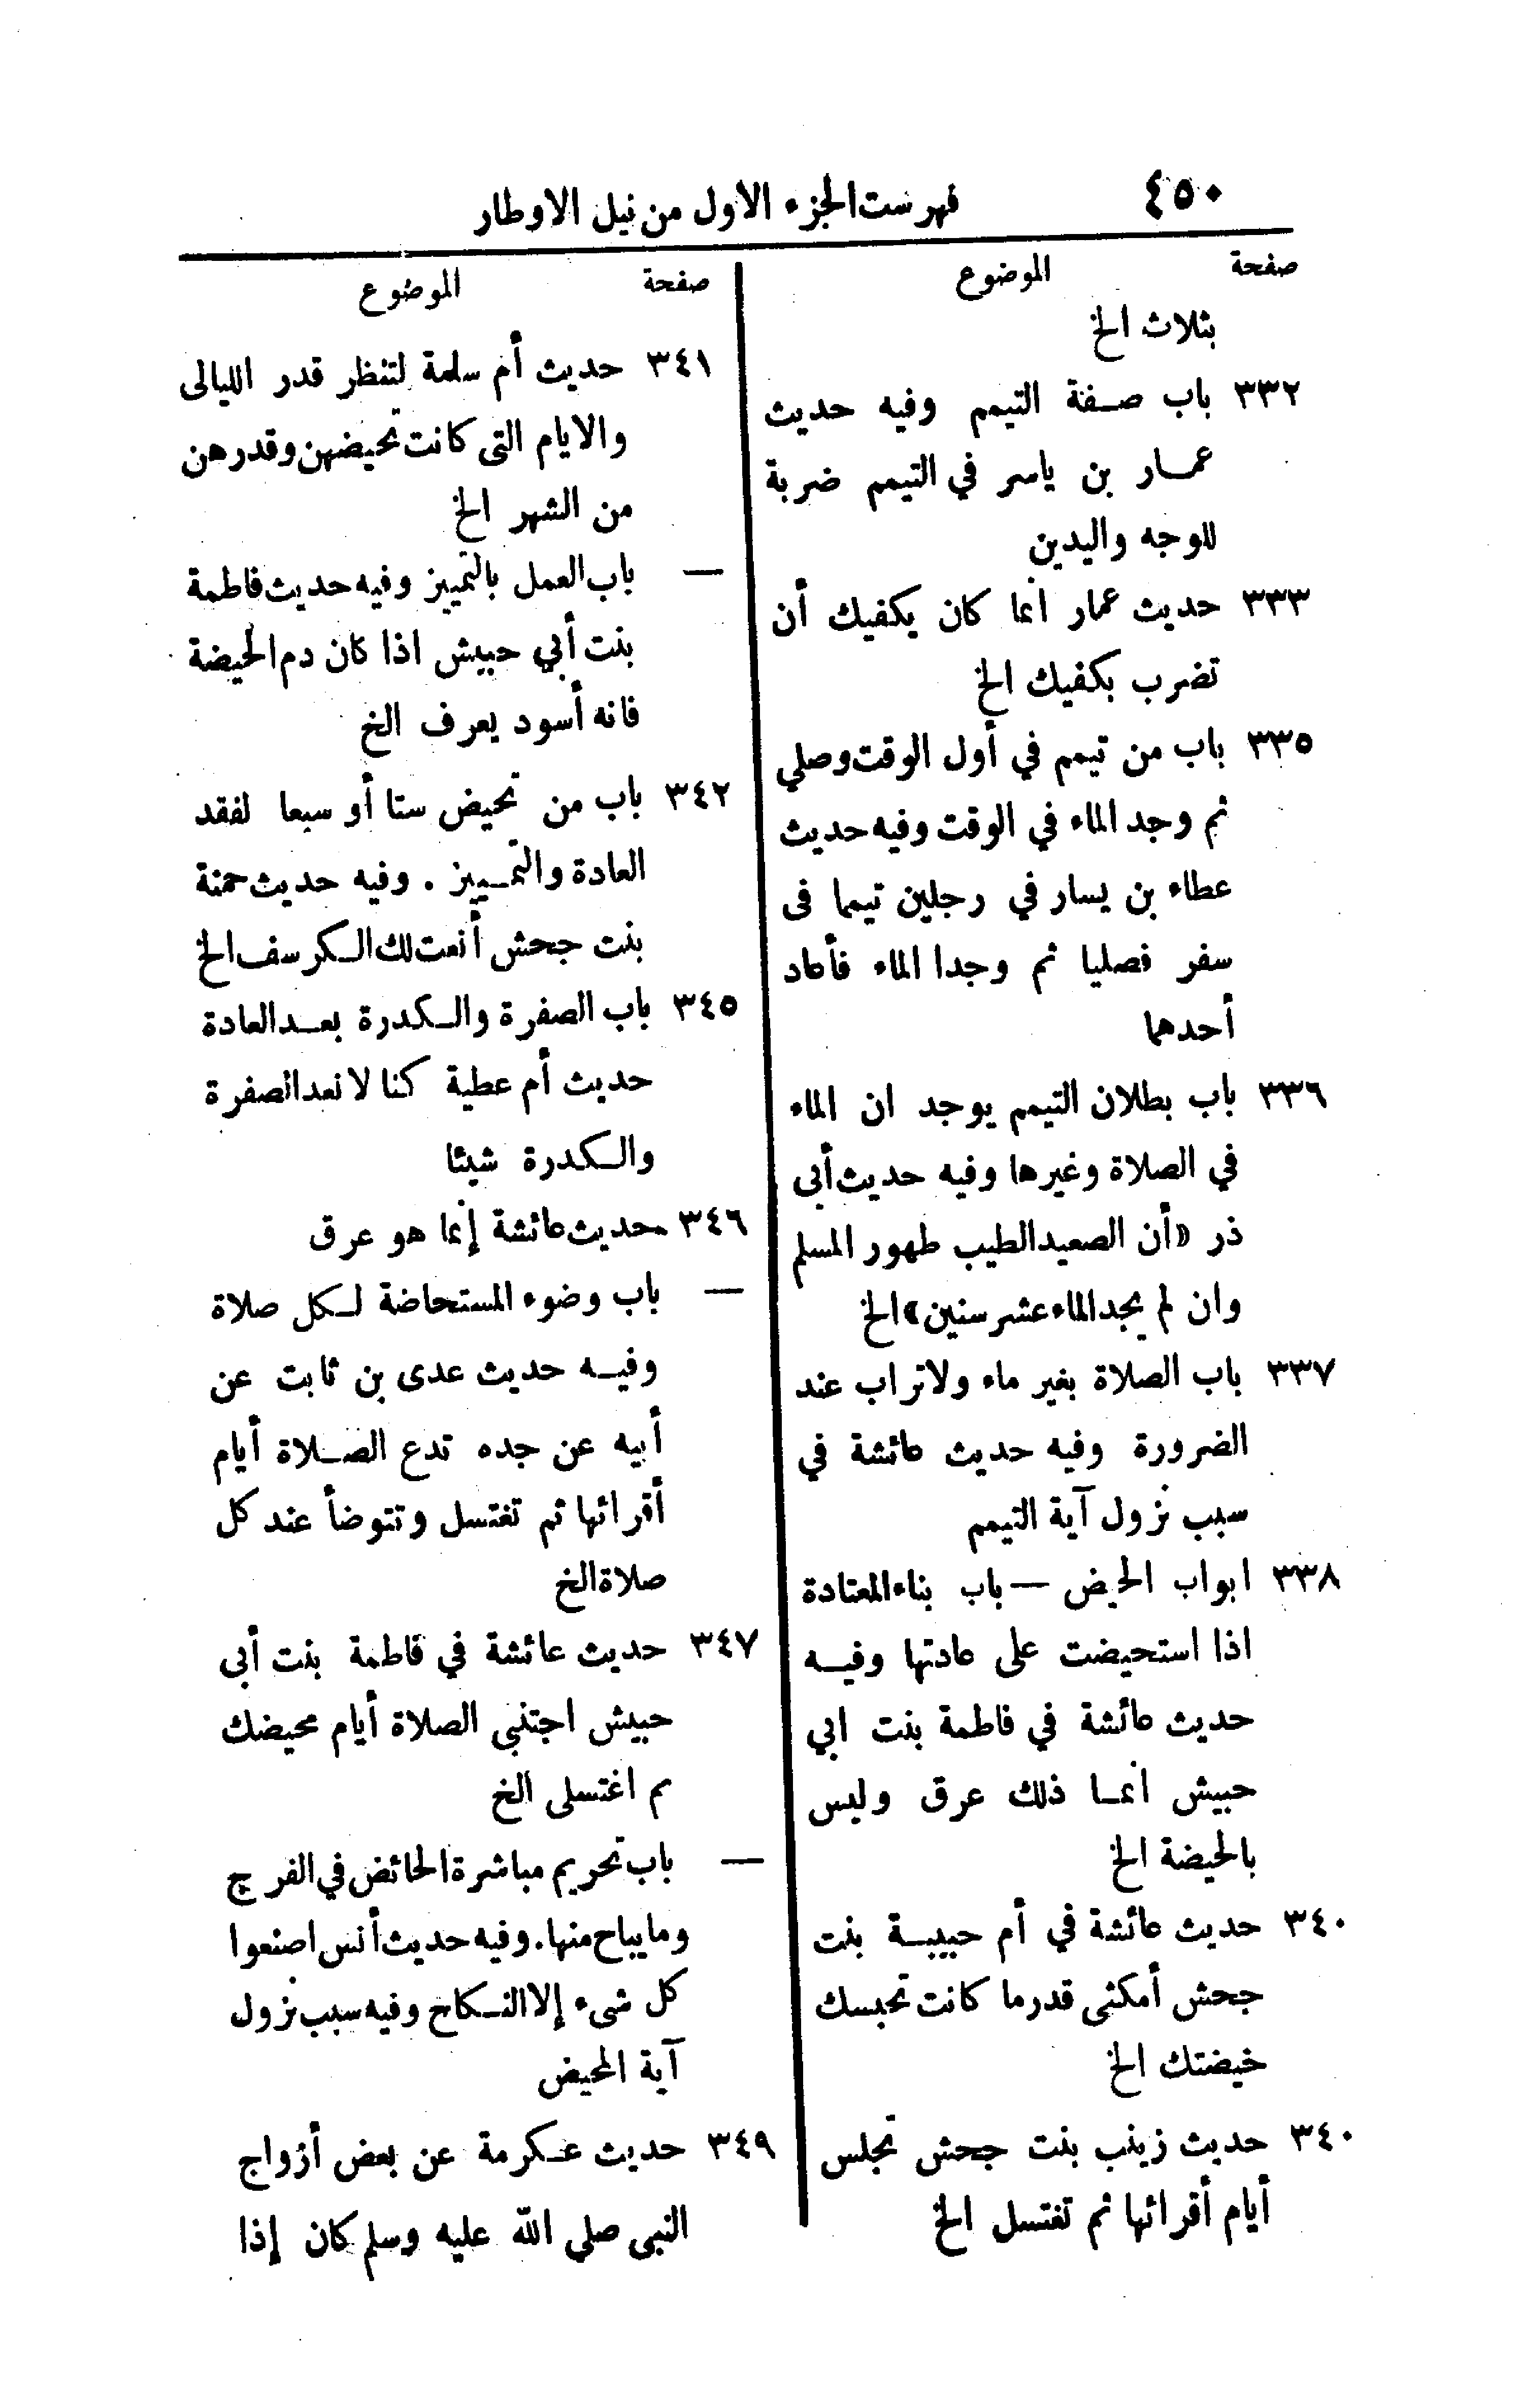 ٤٥٠
فهرست الجزء الاول من نيل الاوطار
صفحة الموضوع
بثلاث الخ
٣٣٢ باب صفة التيمم وفيه حديث
عمار بن ياسر في التيمم ضربة
للوجه واليدين
٣٣٣ حديث عمار انما كان يكفيك أن
تضرب بكفيك الخ
٣٣٥ باب من تيمم في أول الوقت وصلي
ثم وجد الماء في الوقت وفيه حديث
عطاء بن يسار في رجلين تيمما فى
سفر فصليا ثم وجدا الماء فأعاد
أحدهما
٣٣٦ باب بطلان التيمم يوجد ان الماء
في الصلاة وغيرها وفيه حديث أبى
ذر «أن الصعيد الطيب طهور المسلم
وان لم يجد الماء عشر سنين» الخ
٣٣٧ باب الصلاة بغير ماء ولا تراب عند
الضرورة وفيه حديث عائشة في
سبب نزول آية التيمم
٣٣٨ ابواب الحيض — باب بناء المعتادة
اذا استحيضت على عادتها وفيه
حديث عائشة في فاطمة بنت ابي
حبيش انما ذلك عرق وليس
بالحيضة الخ
٣٤٠ حديث عائشة في أم حبيبة بنت
جحش أمكثى قدر ما كانت تحبسك
خيضتك الخ
٣٤٠ حديث زينب بنت جحش تجلس
أيام أقرائها ثم تغتسل الخ
صفحة الموضوع
٣٤١ حديث أم سلمة لتنظر قدر الليالى
والايام التى كانت تحيضهن وقدرهن
من الشهر الخ
— باب العمل بالتمييز وفيه حديث فاطمة
بنت أبي حبيش اذا كان دم الحيضة
فانه أسود يعرف الخ
٣٤٢ باب من تحيض ستا أو سبعا لفقد
العادة والتمييز . وفيه حديث حمنة
بنت جحش أنعت لك الكرسف الخ
٣٤٥ باب الصفرة والكدرة بعد العادة
حديث أم عطية كنا لا نعد الصفرة
والكدرة شيئا
٣٤٦ حديث عائشة إنما هو عرق
— باب وضوء المستحاضة لكل صلاة
وفيه حديث عدى بن ثابت عن
أبيه عن جده تدع الصلاة أيام
أقرائها ثم تغتسل وتتوضأ عند كل
صلاة الخ
٣٤٧ حديث عائشة في فاطمة بنت أبى
حبيش اجتنبى الصلاة أيام محيضك
ثم اغتسلى الخ
— باب تحريم مباشرة الحائض في الفرج
وما يباح منها. وفيه حديث أنس اصنعوا
كل شىء إلا النكاح وفيه سبب نزول
آية المحيض
٣٤٩ حديث عكرمة عن بعض أزواج
النبى صلي الله عليه وسلم كان إذا